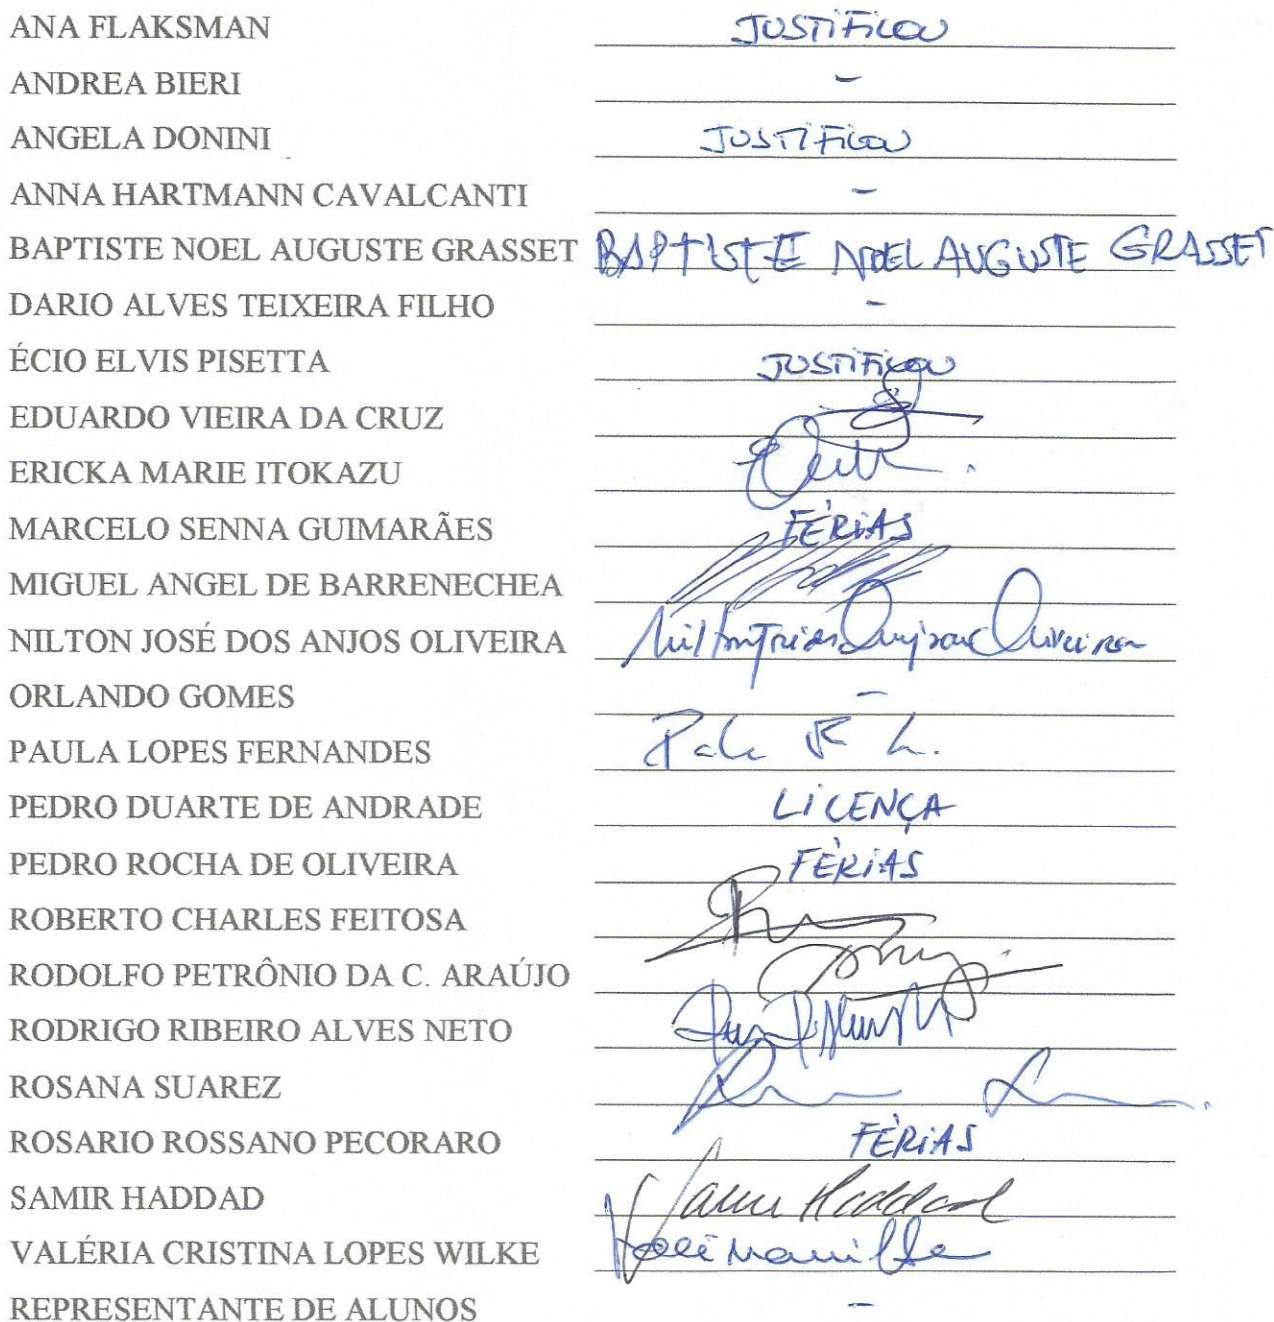 ANA FLAKSMAN JUSTIFICOU
ANDREA BIERI -
ANGELA DONINI JUSTIFICOU
ANNA HARTMANN CAVALCANTI -
BAPTISTE NOEL AUGUSTE GRASSET BAPTISTE NOEL AUGUSTE GRASSET
DARIO ALVES TEIXEIRA FILHO -
ÉCIO ELVIS PISETTA JUSTIFICOU
EDUARDO VIEIRA DA CRUZ
ERICKA MARIE ITOKAZU
MARCELO SENNA GUIMARÃES FÉRIAS
MIGUEL ANGEL DE BARRENECHEA
NILTON JOSÉ DOS ANJOS OLIVEIRA
ORLANDO GOMES -
PAULA LOPES FERNANDES
PEDRO DUARTE DE ANDRADE LICENÇA
PEDRO ROCHA DE OLIVEIRA FÉRIAS
ROBERTO CHARLES FEITOSA
RODOLFO PETRÔNIO DA C. ARAÚJO
RODRIGO RIBEIRO ALVES NETO
ROSANA SUAREZ
ROSARIO ROSSANO PECORARO FÉRIAS
SAMIR HADDAD Samir Haddad
VALÉRIA CRISTINA LOPES WILKE
REPRESENTANTE DE ALUNOS -